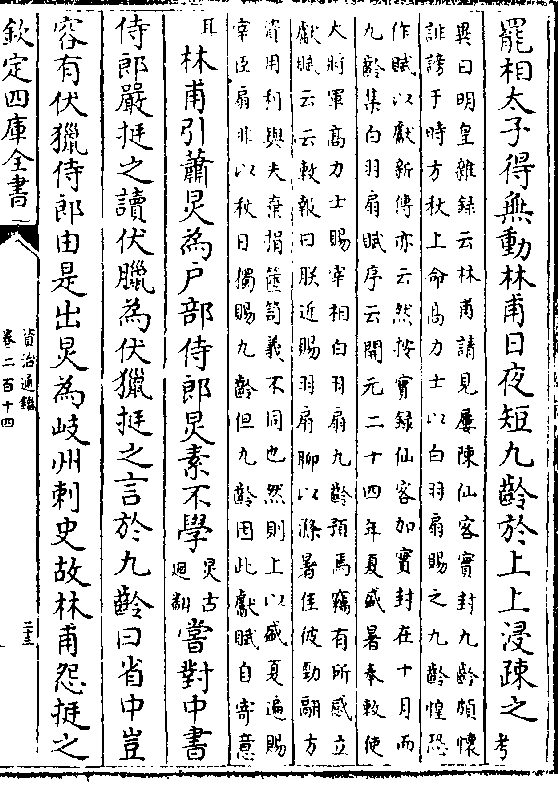 罷相太子得無動林甫日夜短九齡於上上浸疎之考
異曰明皇雜錄云林甫請見屢陳仙客實封九齡頗懷
誹謗于時方秋上命高力士以白羽扇賜之九齡惶恐
作賦以獻新傳亦云然按實錄仙客加實封在十月而
九齡集白羽扇賦序云開元二十四年夏盛暑奉敕使
大將軍高力士賜宰相白羽扇九齡預焉竊有所感立
獻賦云云敕報曰朕近賜羽扇聊以滌暑佳彼勁翮方
資用利與夫棄捐篋笥義不同也然則上以盛夏遍賜
宰臣扇非以秋日獨賜九齡但九齡因此獻賦自寄意
耳林甫引蕭炅為户部侍郎炅素不學炅古迥翻嘗對中書
侍郎嚴挺之讀伏臘為伏獵挺之言於九齡曰省中豈
容有伏獵侍郎由是出炅為岐州刺史故林甫怨挺之
欽定四庫全書
資治通鑑
卷二百十四
二十三